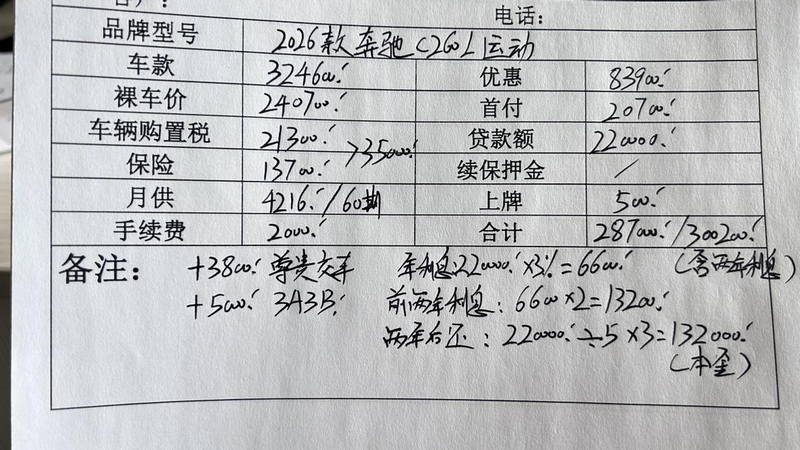 电话：
品牌型号 2026款奔驰C260L运动
车款 324600.- 优惠 83900.-
裸车价 240700.- 首付 20700.-
车辆购置税 21300.- >35000.- 贷款额 220000.-
保险 13700.- 续保押金 /
月供 4216.-/60期 上牌 500.-
手续费 2000.- 合计 287000.-/300200.-
备注： +3800.- 尊贵交车 年利息:220000.-×3%=6600.- (含两年利息)
+5000.- 3A3B. 前两年利息：6600×2=13200.-
两年后还：220000.-÷5×3=132000.-
(本金)